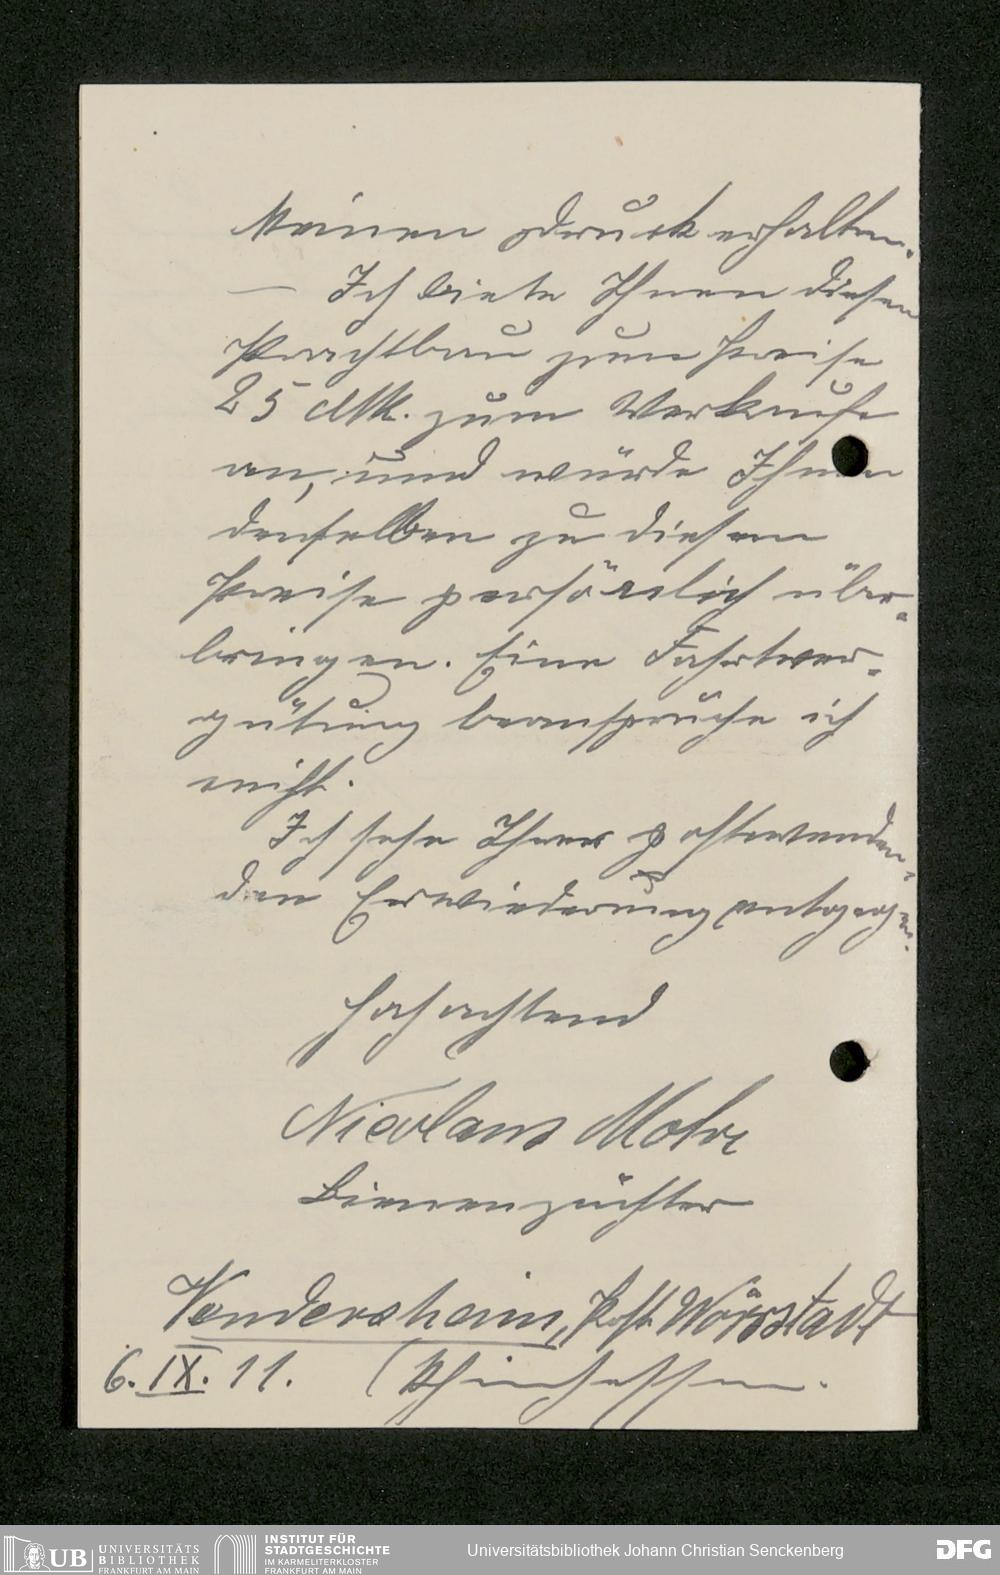 kleinen Druck erhalten.
— Ich biete Ihnen diesen
Prachtbau zum Preise
25 Mk. zum Verkaufe
an, und würde Ihnen
denselben zu diesem
Preise persönlich über-
bringen. Eine Fahrtver-
gütung beanspruche ich
nicht.
Ich sehe Ihrer postwenden-
den Erwiederung entgegen.
Hochachtend
Nicolaus Mohr
Bienenzüchter
Vendersheim, Post Wörrstadt
6. IX. 11. (Rheinhessen.
UB UNIVERSITÄTS
BIBLIOTHEK
FRANKFURT AM MAIN
INSTITUT FÜR
STADTGESCHICHTE
IM KARMELITERKLOSTER
FRANKFURT AM MAIN
Universitätsbibliothek Johann Christian Senckenberg
DFG